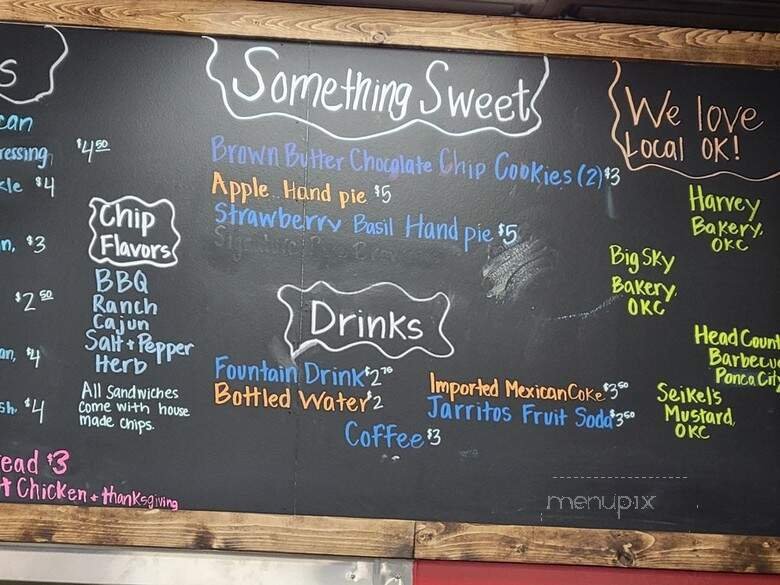 s
can
ressing $4⁵⁰
kle $4
n, $3
$2⁵⁰
an, $4
sh. $4
ead $3
t Chicken + thanksgiving
Chip
Flavors
BBQ
Ranch
Cajun
Salt + Pepper
Herb
All Sandwiches
Come with house
made chips.
Something Sweet
Brown Butter Chocolate Chip Cookies (2) $3
Apple Hand pie $5
Strawberry Basil Hand pie $5
Drinks
Fountain Drink $2⁷⁰
Bottled Water $2
Imported Mexican Coke $3⁵⁰
Jarritos Fruit Soda $3⁵⁰
Coffee $3
We love
Local OK!
Harvey
Bakery,
OKC
Big Sky
Bakery,
OKC
Head Count
Barbecu
Ponca Cit
Seikel's
Mustard,
OKC
menupix